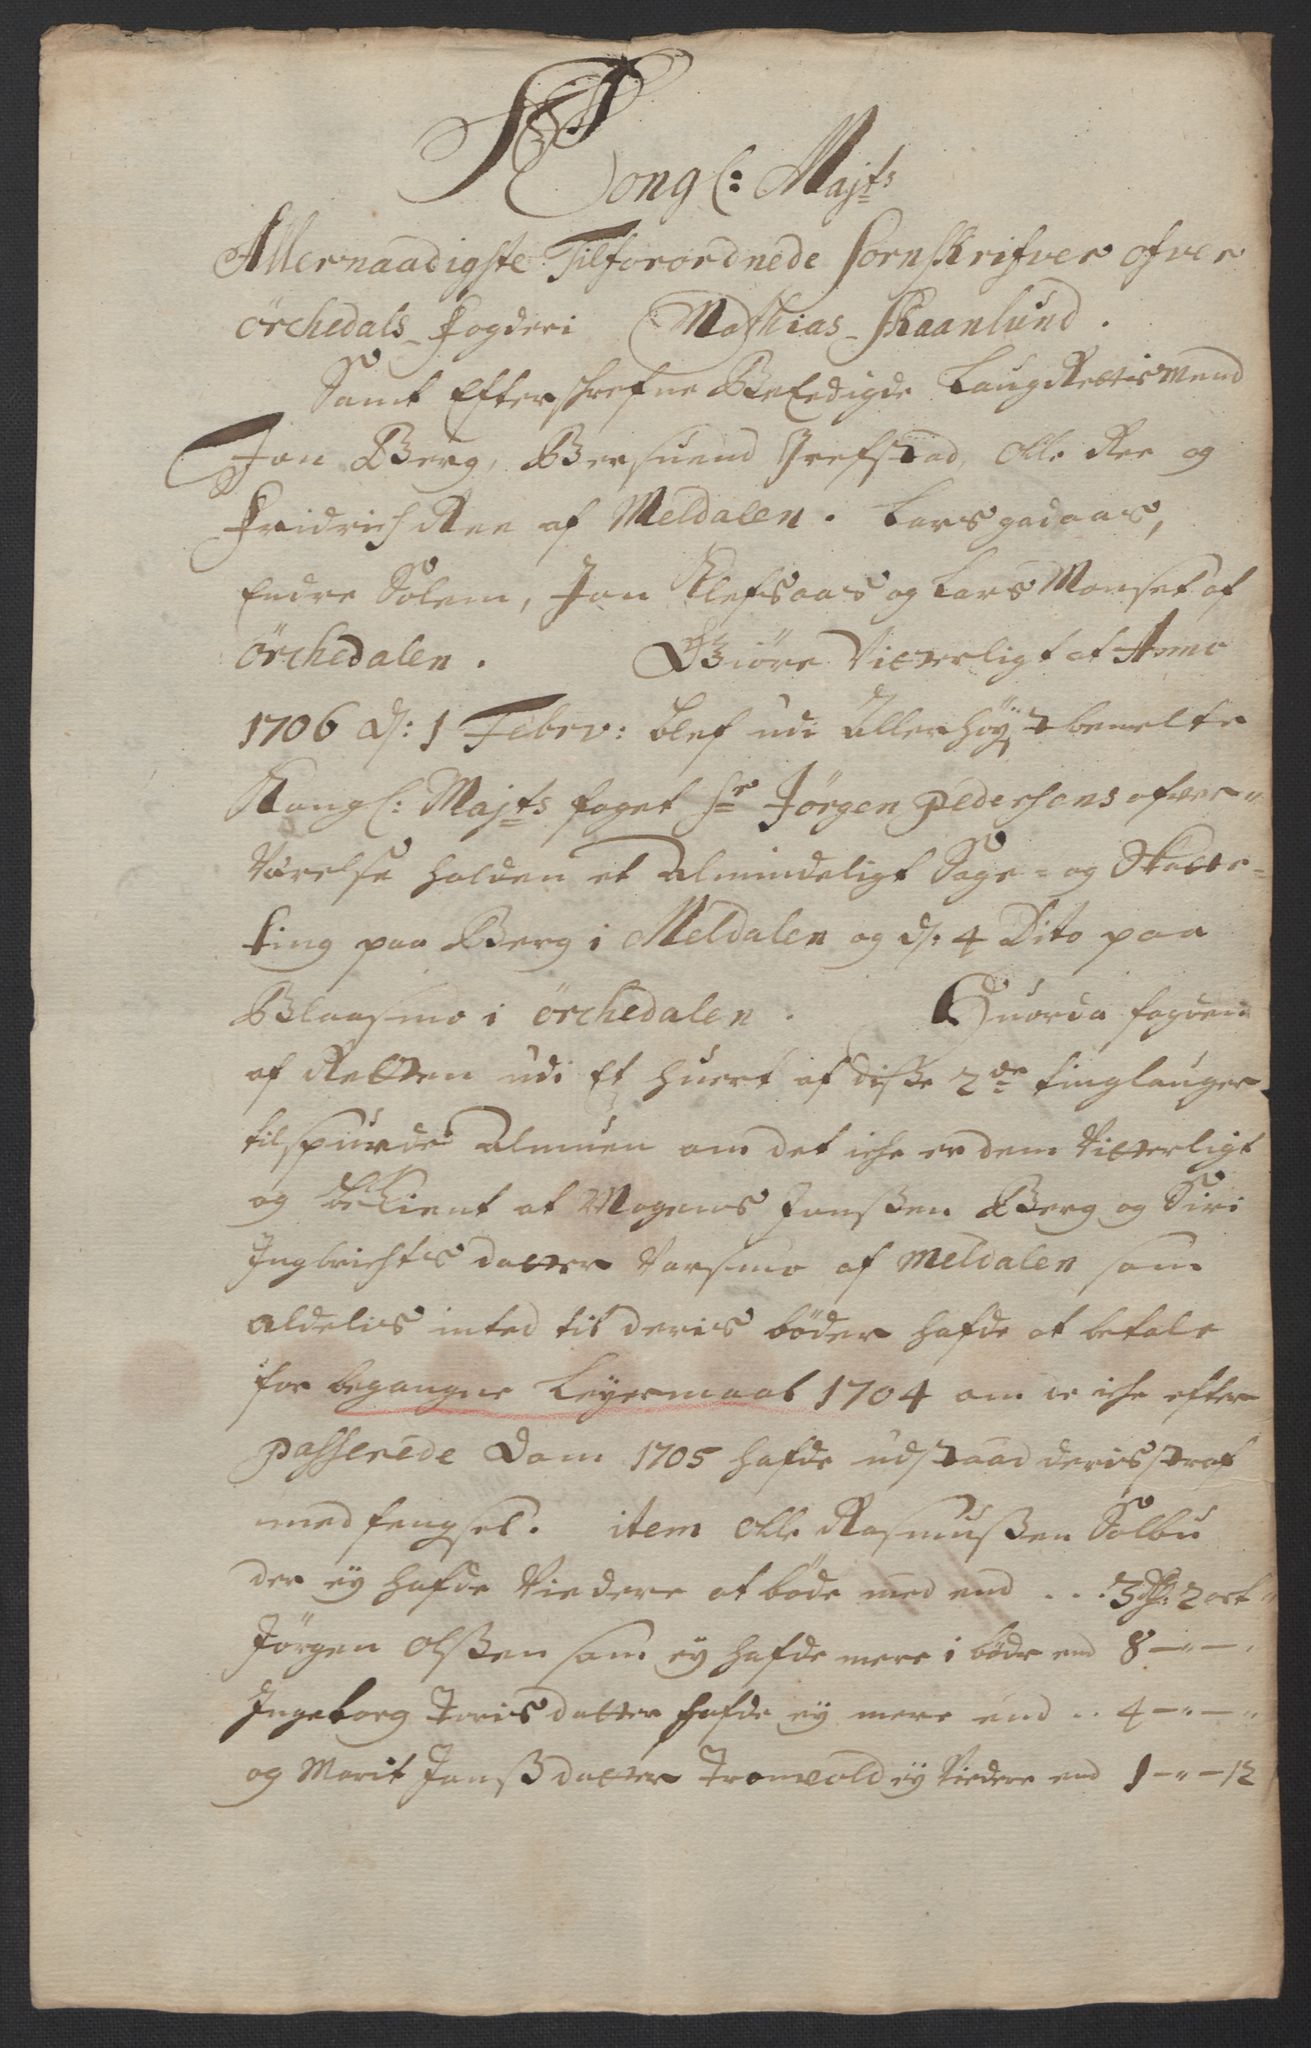 Kongl: Majts
Allernaadigste Tilforordnede Sornskrifver ofver
Örchedals Fogderi Mathias Skaanlund.
Samt Efterschrefne BeEedigde LaugRettismend
Jon Berg, Bersuend Grefstad, Olle Ree og
Fridrich Ree af Meldalen. Lars gadaas,
Endre Solem, Jon Klefsaas og Lars Monset af
Örchedalen. Giöre Vitterligt at Anno
1706 d: 1 Febrv: blef udi Allerhöystbemelte
Kongl: Majts foget Sr Jörgen Pedersens ofver-
Værelse holden et Almindeligt Sage- og Skatte-
ting paa Berg i Meldalen og d: 4 Dito paa
Blaasmo i Örchedalen. Huorda fogden
af Retten udi Et huert af diße 2de tinglauger
tilspurde Almuen om det iche er dem Vitterligt
og bekient at Mogens Jonßen Berg og Siri
Ingbrichtsdatter Varsmo af Meldalen som
aldelis inted til deris böder hafde at betale
for begangne Leyermaal 1704 om de iche efter
passerede Dom 1705 hafde udstaad deris straf
med fengsel. item Olle Rasmußen Solbu
der ey hafde Viedere at böde med end . . . 3 Rdr: 2 ort "
Jörgen Olßen som ey hafde mere i böde end 8 — " — "
Ingeborg Torisdatter hafde ey mere end . . 4 — " — "
og Marit Jonßdatter Tronvold ey Viedere end 1 — " — 12